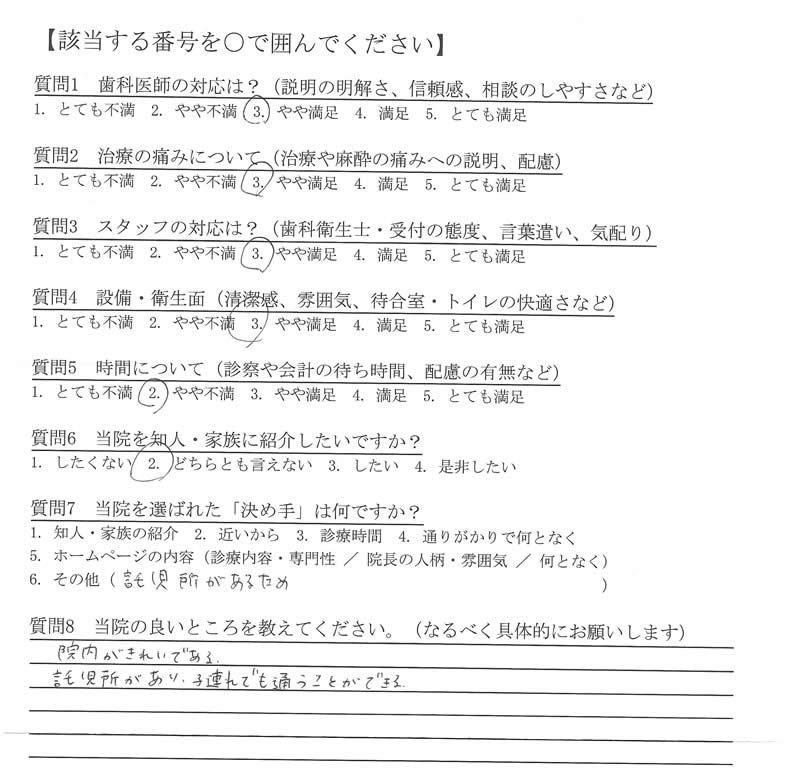 【該当する番号を○で囲んでください】
質問1 歯科医師の対応は？（説明の明解さ、信頼感、相談のしやすさなど）
1. とても不満 2. やや不満 3. やや満足 4. 満足 5. とても満足
質問2 治療の痛みについて（治療や麻酔の痛みへの説明、配慮）
1. とても不満 2. やや不満 3. やや満足 4. 満足 5. とても満足
質問3 スタッフの対応は？（歯科衛生士・受付の態度、言葉遣い、気配り）
1. とても不満 2. やや不満 3. やや満足 4. 満足 5. とても満足
質問4 設備・衛生面（清潔感、雰囲気、待合室・トイレの快適さなど）
1. とても不満 2. やや不満 3. やや満足 4. 満足 5. とても満足
質問5 時間について（診察や会計の待ち時間、配慮の有無など）
1. とても不満 2. やや不満 3. やや満足 4. 満足 5. とても満足
質問6 当院を知人・家族に紹介したいですか？
1. したくない 2. どちらとも言えない 3. したい 4. 是非したい
質問7 当院を選ばれた「決め手」は何ですか？
1. 知人・家族の紹介 2. 近いから 3. 診療時間 4. 通りがかりで何となく
5. ホームページの内容（診療内容・専門性 ／ 院長の人柄・雰囲気 ／ 何となく）
6. その他（託児所があるため）
質問8 当院の良いところを教えてください。（なるべく具体的にお願いします）
院内がきれいである.
託児所があり、子連れでも通うことができる.